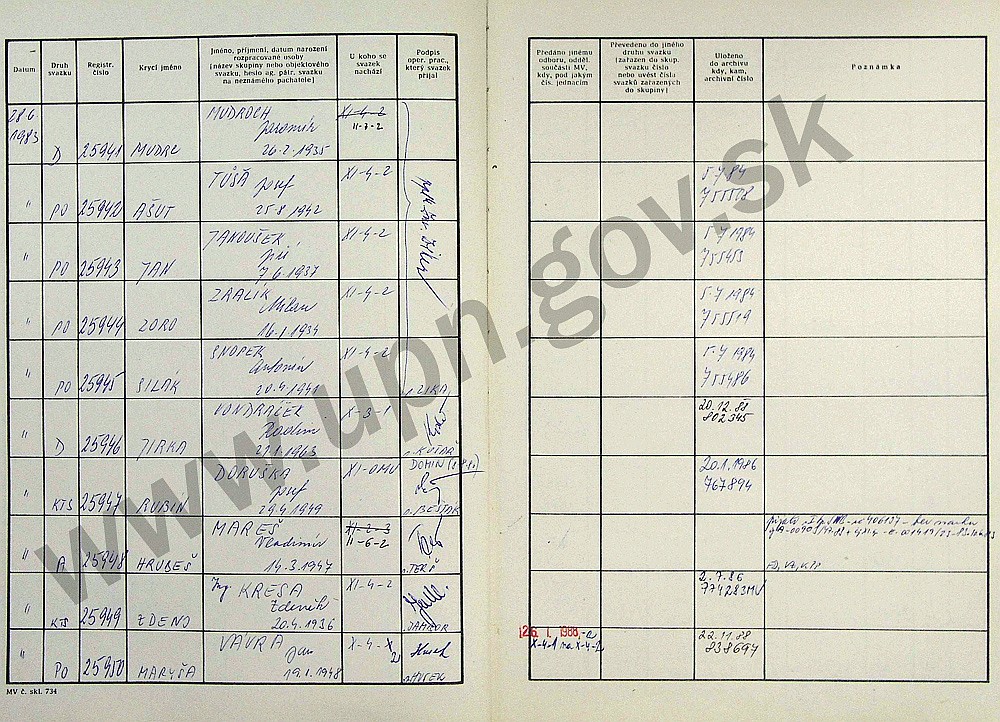 Datum
Druh svazku
Registr. číslo
Krycí jméno
Jméno, příjmení, datum narození
rozpracované osoby
(název skupiny nebo objektového
svazku, heslo ag. pátr. svazku
na neznámého pachatele)
U koho se
svazek
nachází
Podpis
oper. prac.,
který svazek
přijal
Předáno jinému
odboru, odděl.
součásti MV,
kdy, pod jakým
čís. jednacím
Převedeno do jiného
druhu svazku
(zařazen do skup.
svazku číslo
nebo uvést čísla
svazků zařazených
do skupiny)
Uloženo
do archivu
kdy, kam,
archivní číslo
Poznámka
28.6.
1983
D 25941 MUDRC
MUDROCH
Jaromír
26.2.1935
XI-4-2
II-3-2
" PO 25942 AŠUT
TŮŠA Josef
25.8.1942
XI-4-2
5.7.84
755578
" PO 25943 JAN
JAKOUŠEK
Jiří
7.6.1937
XI-4-2
5.7.1984
755453
" PO 25944 ZORO
ZRALÍK
Milan
16.1.1934
XI-4-2
5.7.1984
755519
" PO 25945 SILÁK
SNOPEK
Antonín
20.4.1941
XI-4-2
ZIKA
5.7.1984
755486
" D 25946 JIRKA
VONDRÁČEK
Radim
21.1.1963
X-3-1
20.12.88
802345
" KTS 25947 RUBIN
DORUŠKA
Josef
29.4.1949
XI-OMV
DOMIN
BEŠŤÁK
20.1.1986
767894
" A 25948 HRUBEŠ
MAREŠ
Vladimír
14.3.1947
XI-2-3
II-6-2
" KTS 25949 ZDENO
Ing. KRESA
Zdeněk
20.4.1936
XI-4-2
JAMBOR
2.7.86
774283MV
" PO 25950 MARYŠA
VÁVRA
Jan
19.1.1948
X-4-2
HUSEK
26. 1. 1988
X-4-1 na X-4-2
22.11.88
838697
MV č. skl. 734
www.upn.gov.sk